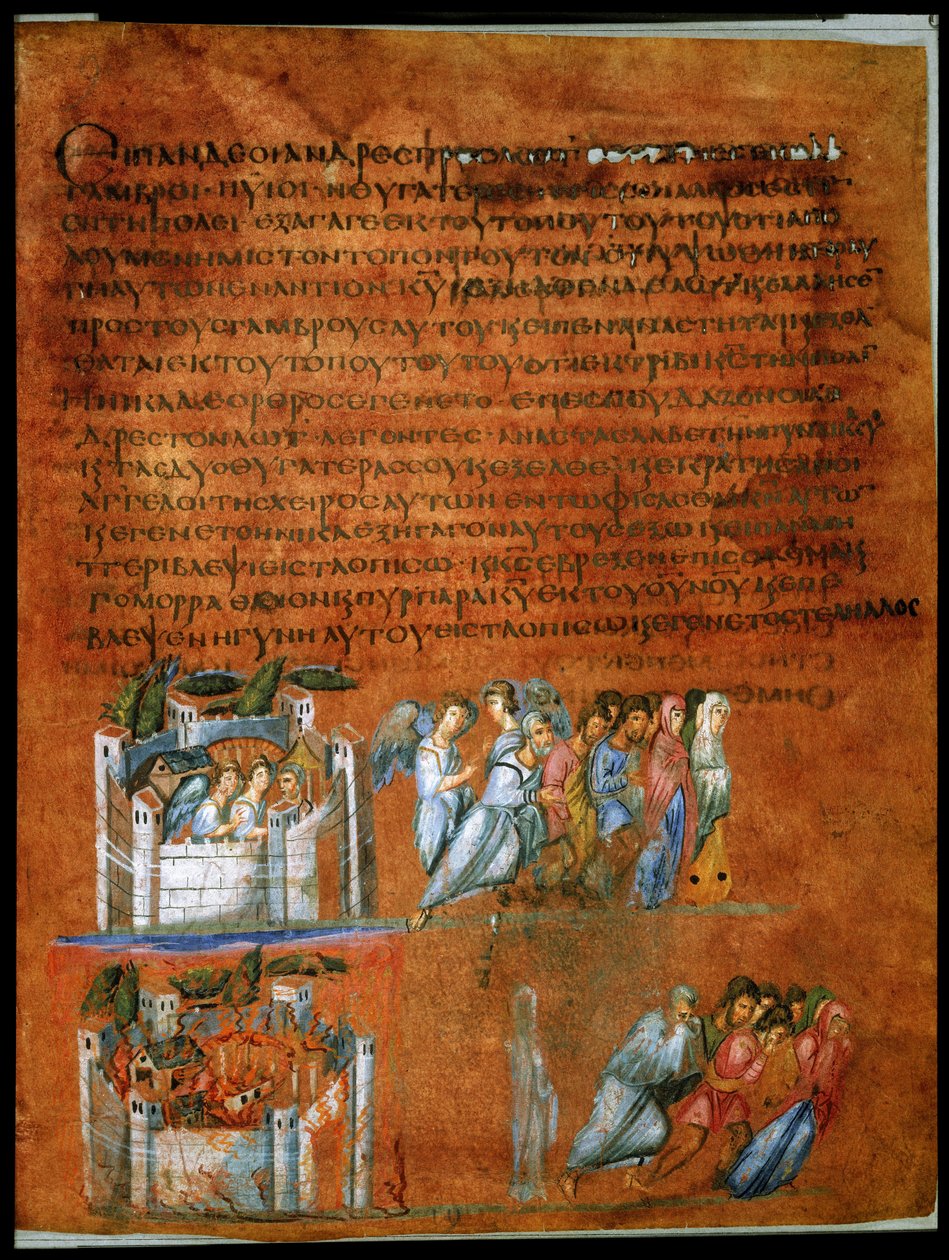 ΕΙΠΑΝΔΕΟΙΑΝΔΡΕCΠΡΟCΛΩΤ
ΓΑΜΒΡΟΙ·ΗΫΙΟΙ·ΗΘΥΓΑΤΕΡΕC
ΕΝΤΗΠΟΛΕΙ·ΕΞΑΓΑΓΕΕΚΤΟΥΤΟΠΟΥΤΟΥΤΟΥΟΤΙΑΠΟ
ΛΟΥΜΕΝΗΜΙCΤΟΝΤΟΠΟΝΤΟΥΤΟΝΟΤΙΥΨΩΘΗΗΚΡΑΥ
ΓΗΑΥΤΩΝΕΝΑΝΤΙΟΝΚ͞Υ ΕΞΗΛΘΕΝΔΕΛΩΤϗΕΛΑΛΗCΕ̅
ΠΡΟCΤΟΥCΓΑΜΒΡΟΥCΑΥΤΟΥϗΕΙΠΕΝΑΝΑCΤΗΤΑΙϗΕΞΕΛ
ΘΑΤΑΙΕΚΤΟΥΤΟΠΟΥΤΟΥΤΟΥΟΤΙΕΚΤΡΙΒΙΚ͞CΤΗΝΠΟΛΙ̅
ΗΝΙΚΑΔΕΟΡΘΡΟCΕΓΕΝΕΤΟ·ΕΠΕCΠΟΥΔΑΖΟΝΟΙΑΝ
ΔΡΕCΤΟΝΛΩΤ·ΛΕΓΟΝΤΕC·ΑΝΑCΤΑCΛΑΒΕΤΗΝΓΥΝΑΙΚΑCΟΥ
ϗΤΑCΔΥΟΘΥΓΑΤΕΡΑCCΟΥϗΕΞΕΛΘΕ·ϗΕΚΡΑΤΗCΑΝΟΙ
ΑΓΓΕΛΟΙΤΗCΧΕΙΡΟCΑΥΤΩΝΕΝΤΩΦΙCΑCΘΑΙΚ͞ΝΑΥΤΩ̅
ϗΕΓΕΝΕΤΟΗΝΙΚΑΕΞΗΓΑΓΟΝΑΥΤΟΥCΕΞΩϗΕΙΠΑΝΜΗ
ΠΕΡΙΒΛΕΨΙΕΙCΤΑΟΠΙCΩ·ϗΚ͞CΕΒΡΕΞΕΝΕΠΙCΟΔΟΜΑϗ
ΓΟΜΟΡΡΑΘΙΟΝϗΠΥΡΠΑΡΑΚ͞ΥΕΚΤΟΥΟΥ͞ΝΟΥϗΕΠΕ
ΒΛΕΨΕΝΗΓΥΝΗΑΥΤΟΥΕΙCΤΑΟΠΙCΩϗΕΓΕΝΕΤΟCΤΗΛΗΑΛΟC